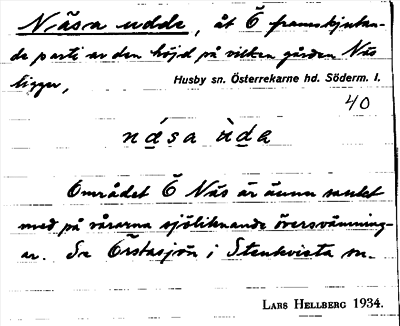 Näsa udde, åt Ö framskjutan-
de parti av den höjd på vilken gården Näs
ligger,
Husby sn. Österrekarne hd. Söderm. l.
40
nása ùda
Området Ö Näs är ännu sankt
med på vårarna sjöliknande översvämning-
ar. Se Örstasjön i Stenkvista sn.
LARS HELLBERG 1934.